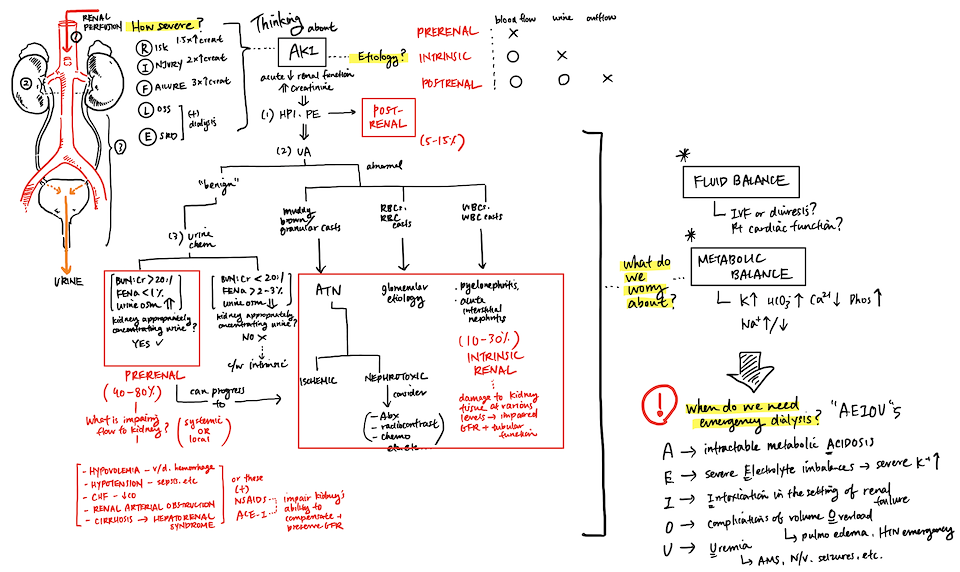 RENAL
PERFUSION
1
2
3
URINE
How severe?
RISK 1.5x↑creat
INJURY 2x↑creat
FAILURE 3x↑creat
LOSS
ESRD
(+)
dialysis
Thinking
about
AKI
acute ↓ renal function
⇈ creatinine
Etiology?
blood flow urine outflow
PRERENAL X
INTRINSIC O X
POSTRENAL O O X
(1) HPI, PE
POST-
RENAL
(5-15%)
(2) UA
"benign"
abnormal
muddy
brown
granular casts
RBCs,
RBC
casts
WBCs,
WBC casts
(3) urine
chem
BUN:Cr >20:1
FENa <1%
urine osm ⇈
kidney appropriately
concentrating urine?
YES ✓
BUN:Cr <20:1
FENa >2-3%
urine osm ⇊
kidney appropriately
concentrating urine?
NO X
c/w intrinsic
PRERENAL
(40-80%)
can progress
to
What is impairing
flow to kidney?
(systemic
OR
local)
- HYPOVOLEMIA - v/d, hemorrhage
- HYPOTENSION - sepsis, etc
- CHF - ↓CO
- RENAL ARTERIAL OBSTRUCTION
- CIRRHOSIS → HEPATORENAL
SYNDROME
or these
(+)
NSAIDs
ACE-I
impair kidney's
ability to
compensate +
preserve GFR
ATN
ISCHEMIC
NEPHROTOXIC
consider
- Abx
- radiocontrast
- chemo
etc. etc.
glomerular
etiology
· pyelonephritis,
· acute
interstitial
nephritis
(10-30%)
INTRINSIC
RENAL
damage to kidney
tissue at various
levels → impaired
GFR + tubular
function
What do
we
worry
about?
*
FLUID BALANCE
IVF or diuresis?
R+ cardiac function?
*
METABOLIC
BALANCE
K↑ HCO3⁻↑ Ca²⁺↓ Phos↑
Na⁺↑/↓
!
When do we need
emergency dialysis? "AEIOU"s
A → intractable metabolic ACIDOSIS
E → severe Electrolyte imbalances → severe K⁺↑
I → Intoxication in the setting of renal
failure
O → complications of volume Overload
↳ pulmo edema, HTN emergency
U → Uremia
↳ AMS, N/V, seizures, etc.